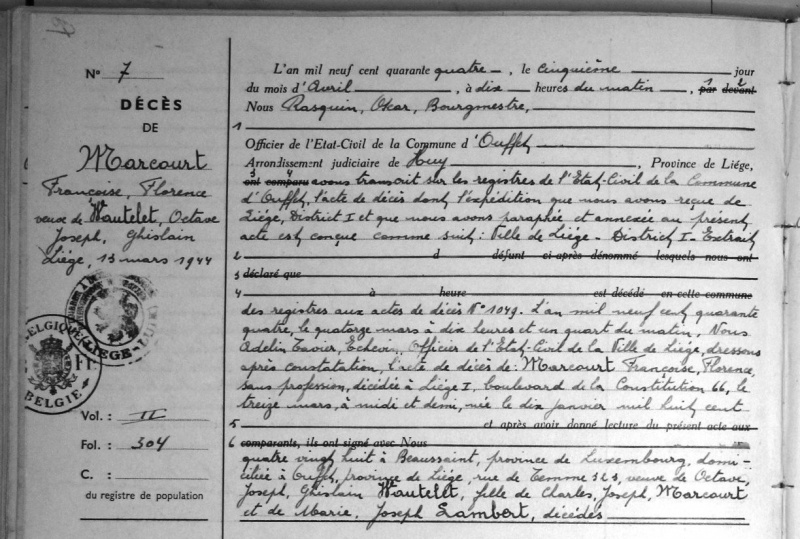 N° 7
DÉCÈS
DE
Marcourt
Françoise, Florence
veuve de Wautelet, Octave
Joseph, Ghislain
Liége, 13 mars 1944
BELGIQUE
BELGIE
LIEGE
Vol. : II
Fol. : 304
C. :
du registre de population
L'an mil neuf cent quarante quatre, le cinquième jour
du mois d'Avril, à dix heures du matin, 1 par devant 2
Nous Rasquin, Oscar, Bourgmestre,
1
Officier de l'Etat-Civil de la Commune d'Ouffet
Arrondissement judiciaire de Huy, Province de Liége,
3 ont comparu 4 avons transcrit sur les registres de l'Etat-Civil de la Commune
d'Ouffet, l'acte de décès dont l'expédition que nous avons reçue de
Liége, District I et que nous avons paraphée et annexée au présent
acte est conçue comme suit : Ville de Liége - District I - Extrait
2 d défunt ci-après dénommé lesquels nous ont
3 déclaré que
4 à heure est décédé en cette commune
des registres aux actes de décès N° 1049. L'an mil neuf cent quarante
quatre, le quatorze mars à dix heures et un quart du matin, Nous
Adelin Xavier, Echevin, Officier de l'Etat-Civil de la Ville de Liége, dressons
après constatation, l'acte de décès de : Marcourt Françoise, Florence,
sans profession, décédée à Liége I, boulevard de la Constitution 66, le
treize mars, à midi et demi, née le dix janvier mil huit cent
5 et après avoir donné lecture du présent acte aux
6 comparants, ils ont signé avec Nous
quatre vingt huit à Beaussaint, province de Luxembourg, domi-
ciliée à Ouffet, province de Liége, rue de Temme 323, veuve de Octave,
Joseph, Ghislain Wautelet, fille de Charles, Joseph, Marcourt
et de Marie, Joseph Lambert, décédés